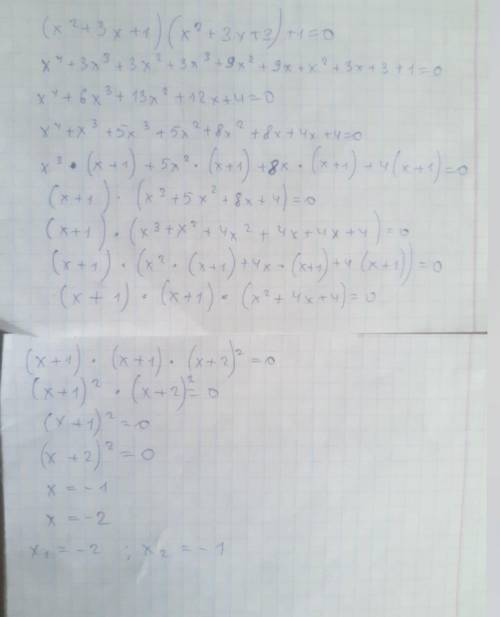 (x²+3x+1)(x²+3x+3)+1=0
x⁴+3x³+3x²+3x³+9x²+9x+x²+3x+3+1=0
x⁴+6x³+13x²+12x+4=0
x⁴+x³+5x³+5x²+8x²+8x+4x+4=0
x³·(x+1)+5x²·(x+1)+8x·(x+1)+4(x+1)=0
(x+1)·(x³+5x²+8x+4)=0
(x+1)·(x³+x²+4x²+4x+4x+4)=0
(x+1)·(x²·(x+1)+4x·(x+1)+4(x+1))=0
(x+1)·(x+1)·(x²+4x+4)=0
(x+1)·(x+1)·(x+2)²=0
(x+1)²·(x+2)²=0
(x+1)²=0
(x+2)²=0
x=-1
x=-2
x₁=-2 ; x₂=-1